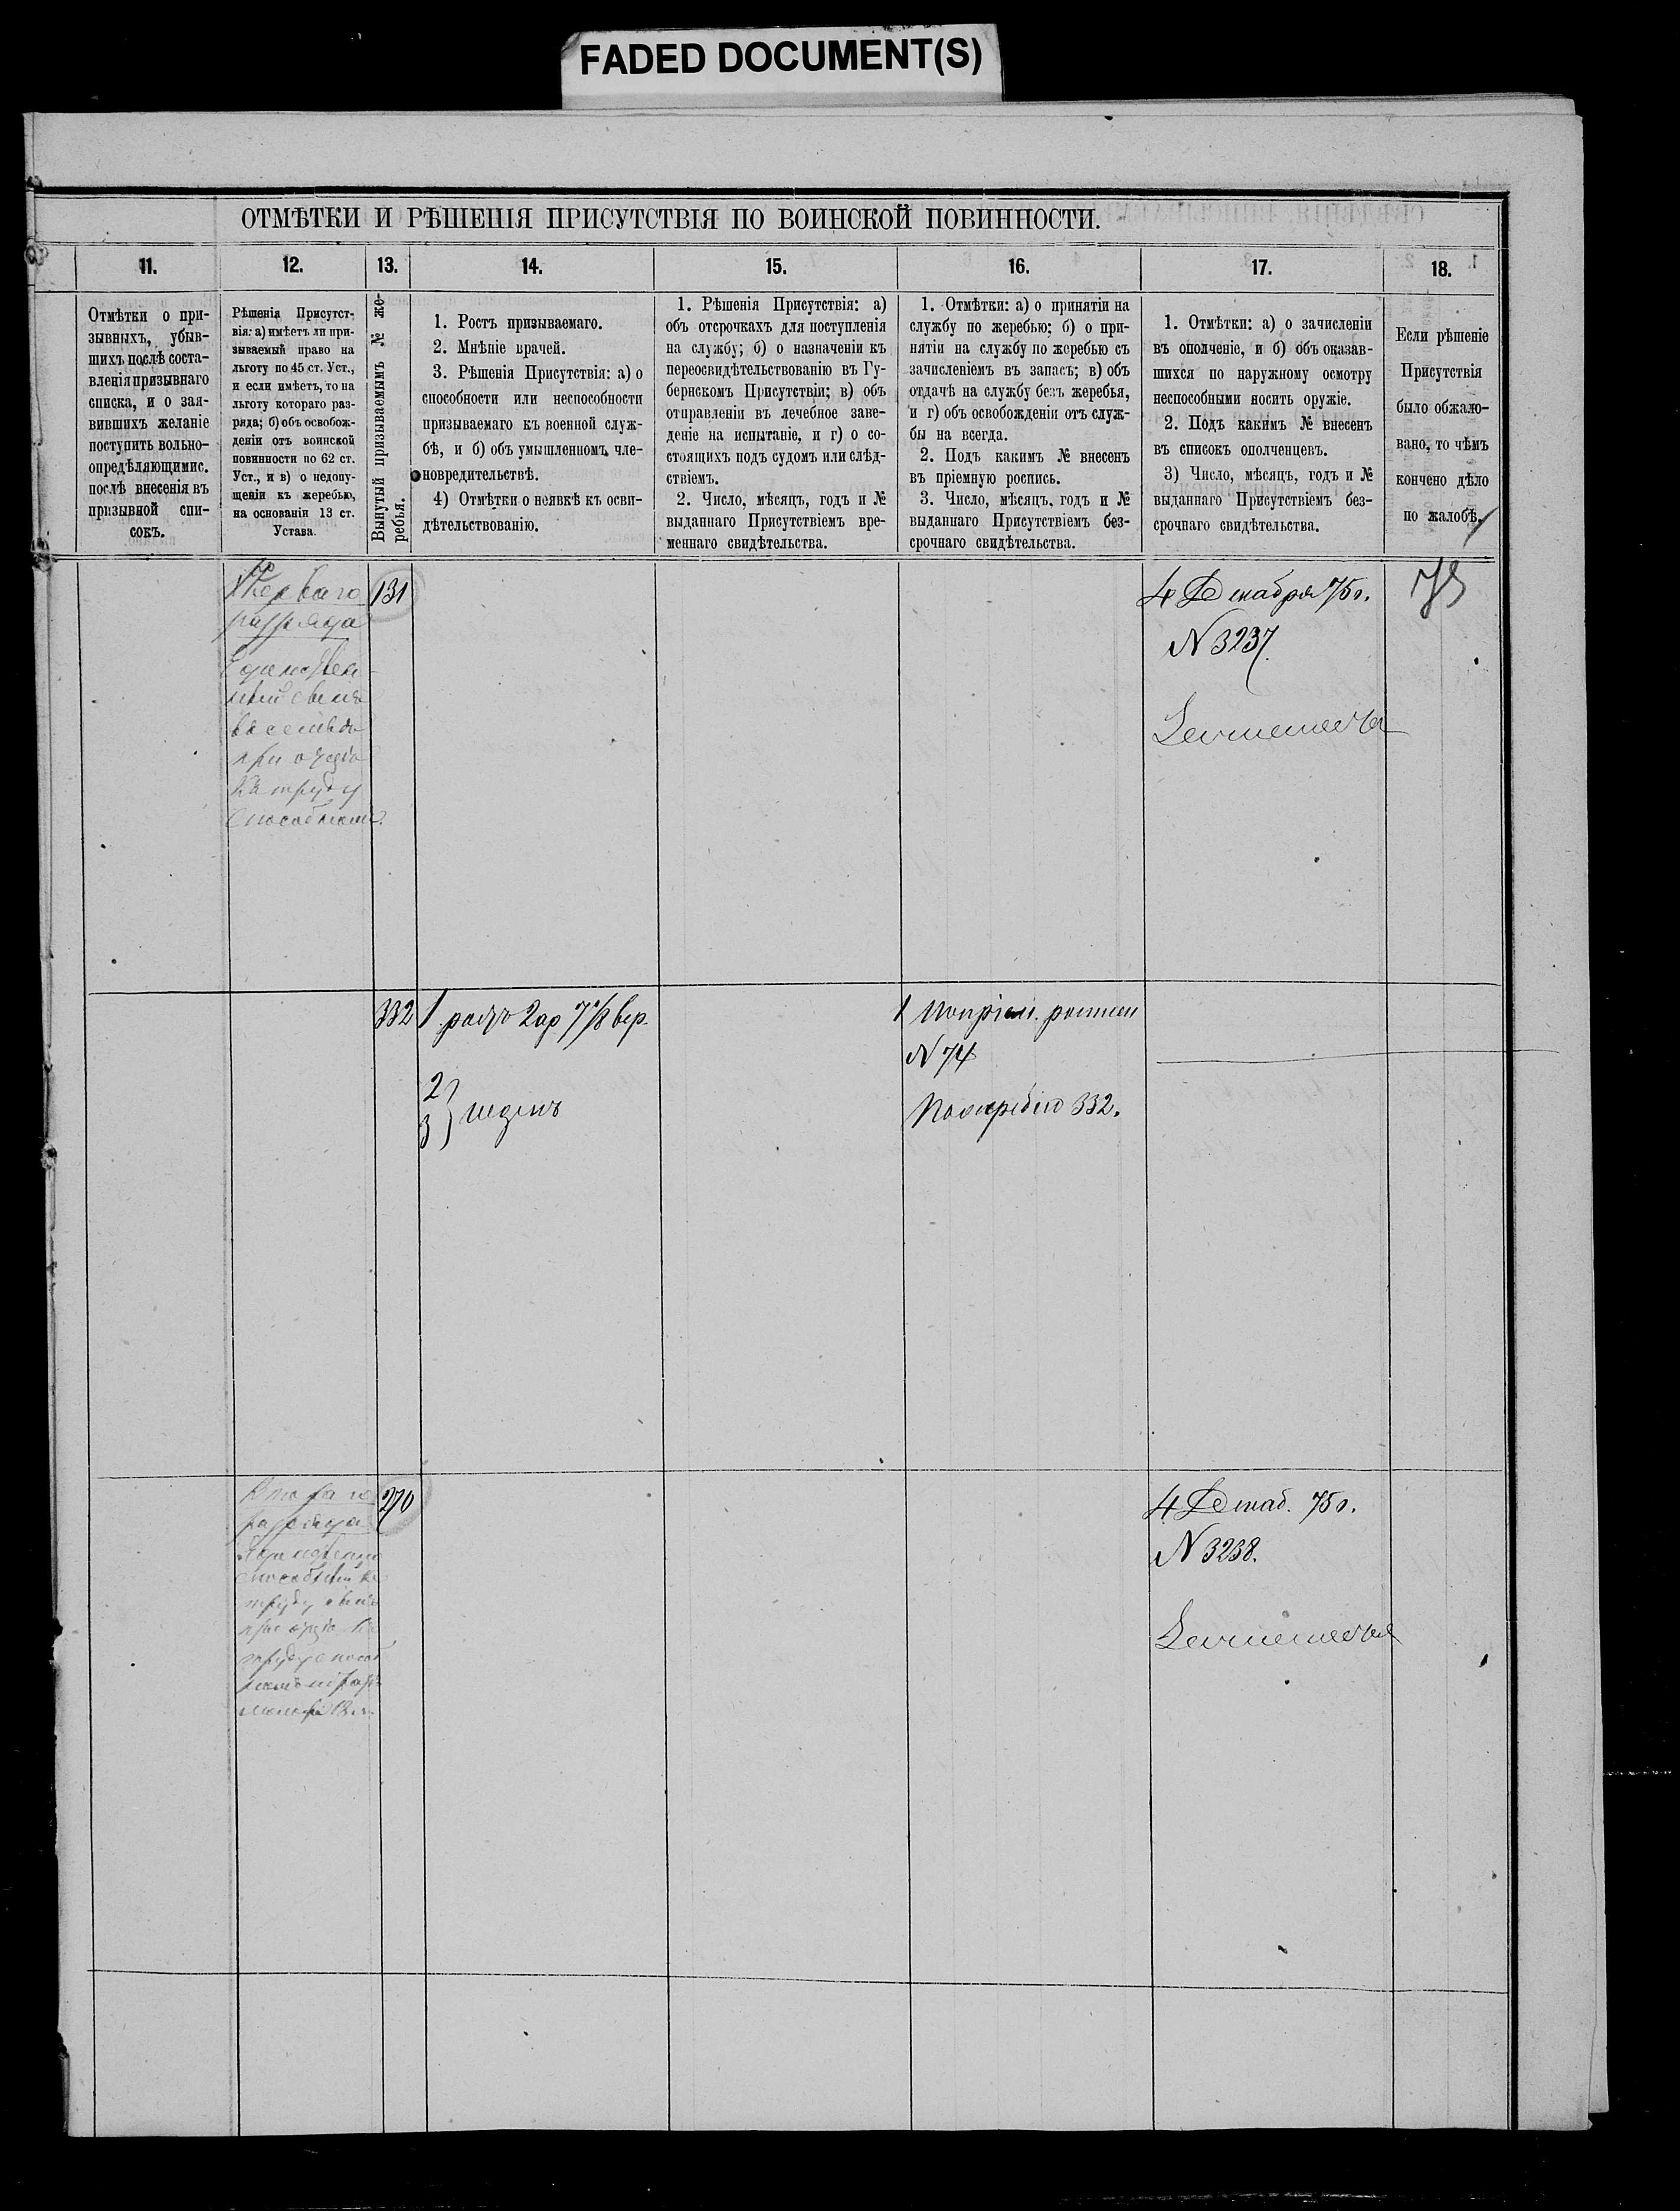 FADED DOCUMENT(S)
ОТМѢТКИ И РѢШЕНІЯ ПРИСУТСТВІЯ ПО ВОИНСКОЙ ПОВИННОСТИ.
11.
12.
13.
14.
15.
16.
17.
18.
Отмѣтки о при-
зывныхъ, убыв-
шихъ послѣ соста-
вленія призывнаго
списка, и о зая-
вившихъ желаніе
поступить вольно-
опредѣляющимис.
послѣ внесенія въ
призывной спи-
сокъ.
Рѣшенія Присутст-
вія: а) имѣетъ ли при-
зываемый право на
льготу по 45 ст. Уст.,
и если имѣетъ, то на
льготу котораго раз-
ряда; б) объ освобож-
деніи отъ воинской
повинности по 62 ст.
Уст., и в) о недопу-
щеніи къ жеребью,
на основаніи 13 ст.
Устава.
Вынутый призываемымъ № же-
ребья.
1. Ростъ призываемаго.
2. Мнѣніе врачей.
3. Рѣшенія Присутствія: а) о
способности или неспособности
призываемаго къ военной служ-
бѣ, и б) объ умышленномъ чле-
новредительствѣ.
4) Отмѣтки о неявкѣ къ осви-
дѣтельствованію.
1. Рѣшенія Присутствія: а)
объ отсрочкахъ для поступленія
на службу; б) о назначеніи къ
переосвидѣтельствованію въ Гу-
бернскомъ Присутствіи; в) объ
отправленіи въ лечебное заве-
деніе на испытаніе, и г) о со-
стоящихъ подъ судомъ или слѣд-
ствіемъ.
2. Число, мѣсяцъ, годъ и №
выданнаго Присутствіемъ вре-
меннаго свидѣтельства.
1. Отмѣтки: а) о принятіи на
службу по жеребью; б) о при-
нятіи на службу по жеребью съ
зачисленіемъ въ запасъ; в) объ
отдачѣ на службу безъ жеребья,
и г) объ освобожденіи отъ служ-
бы на всегда.
2. Подъ какимъ № внесенъ
въ пріемную роспись.
3. Число, мѣсяцъ, годъ и №
выданнаго Присутствіемъ без-
срочнаго свидѣтельства.
1. Отмѣтки: а) о зачисленіи
въ ополченіе, и б) объ оказав-
шихся по наружному осмотру
неспособными носить оружіе.
2. Подъ какимъ № внесенъ
въ списокъ ополченцевъ.
3) Число, мѣсяцъ, годъ и №
выданнаго Присутствіемъ без-
срочнаго свидѣтельства.
Если рѣшеніе
Присутствія
было обжало-
вано, то чѣмъ
кончено дѣло
по жалобѣ.
Перваго
разряда
Единствен-
ный сынъ
въ семьѣ
при отцѣ
къ труду
способномъ.
131
4 Декабря 75 г.
N 3237.
332
1 ростъ 2 ар 7 1/8 вер.
2)
3) годенъ
1 По пріем. росписи
N 74
По жребію 332.
Втораго
разряда
270
способный къ
труду сынъ
при отцѣ къ
труду способ
4 Декаб. 75 г.
N 3238.